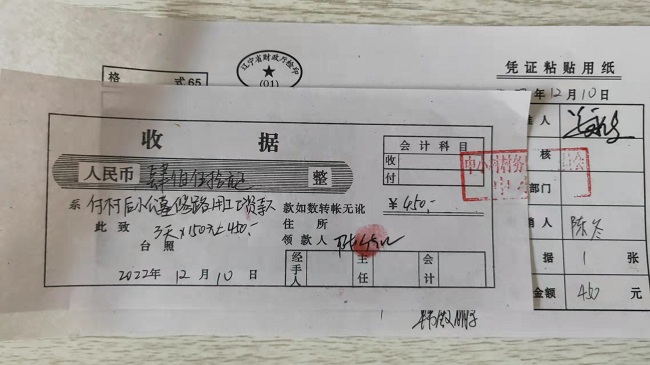 辽宁省财政厅监印
(01)
格 式65
凭证粘贴用纸
年12月10日
准人
核
部门
销人 陈冬
据 1 张
金额 450 元
收 据
会计科目
收
付
人民币 肆佰伍拾元 整
¥450.-
系 付村后小公墓修路用工资款 款如数转帐无讹
此致 3天×150元=450.- 住 所
台照 领款人
2022年 12月 10日
经手人 主任 会计